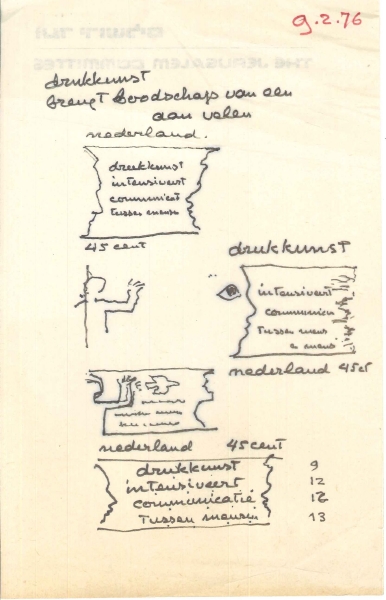 9.2.76
THE JERUSALEM COMMITTEE
drukkunst
brengt boodschap van een
aan velen
nederland.
drukkunst
intensiveert
communicat
tussen mensen
45 cent
drukkunst
intensiveert
communicon
tussen mens
e mens
nederland 45ct
nederland 45 cent
drukkunst 9
intensiveert 12
communicatie 12
tussen mensen 13